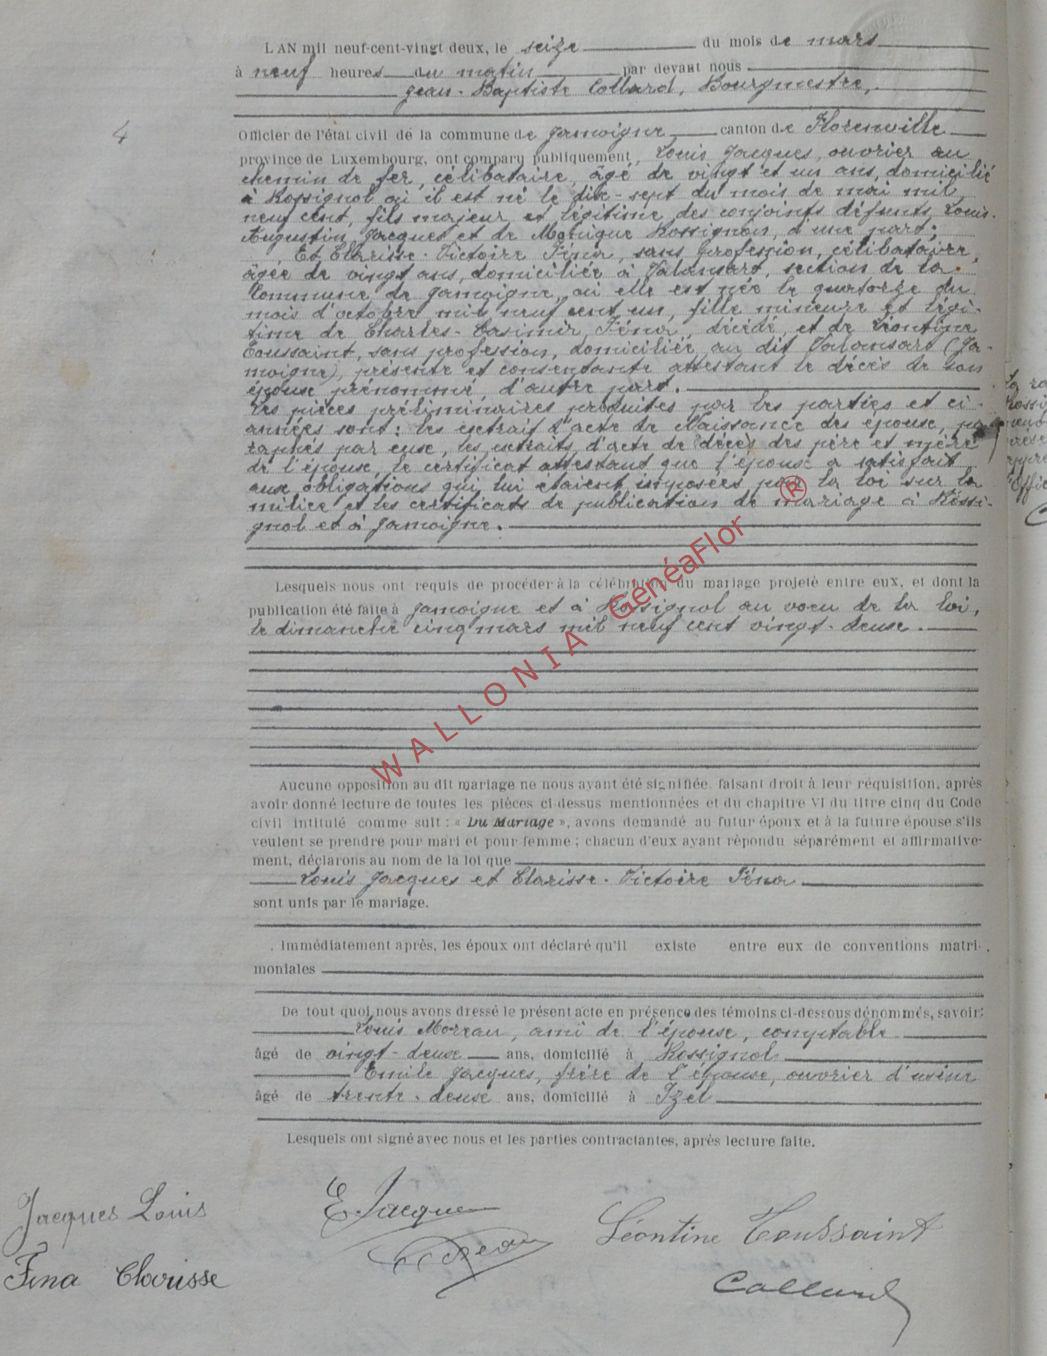 L AN mil neuf-cent-vingt deux, le seize du mois de mars
à neuf heures du matin par devant nous
Jean-Baptiste Collard, Bourgmestre,
4
Officier de l'état civil de la commune de Jamoigne canton de Florenville
province de Luxembourg, ont comparu publiquement, Louis Jacques, ouvrier au
chemin de fer, célibataire, âgé de vingt et un ans, domicilié
à Rossignol où il est né le dix-sept du mois de mai mil
neuf cent, fils majeur et légitime des conjoints défunts Louis-
Augustin Jacques et de Monique Rossignon, d'une part;
Et Clarisse-Victoire Féna, sans profession, célibataire,
âgée de vingt ans, domiciliée à Valansart, section de la
Commune de Jamoigne, où elle est née le quatorze du
mois d'octobre mil neuf cent un, fille mineure et légi-
time de Charles-Casimir Féna, décédé, et de Léontine
Toussaint, sans profession, domiciliée au dit Valansart (Ja-
moigne), présente et consentante attestant le décès de son
époux prénommé, d'autre part.
Les pièces préliminaires produites par les parties et ci-
annexées sont: les extraits d'acte de Naissance des époux,
paraphés par eux, les extraits d'acte de décès des père et mère
de l'époux, le certificat attestant que l'époux a satisfait
aux obligations qui lui étaient imposées par la loi sur la
milice et les certificats de publication de mariage à Rossi-
gnol et à Jamoigne.
Lesquels nous ont requis de procéder à la célébration du mariage projeté entre eux, et dont la
publication été faite à Jamoigne et à Rossignol au voeu de la loi,
le dimanche cinq mars mil neuf cent vingt-deux.
WALLONIA GénéaFlor ®
Aucune opposition au dit mariage ne nous ayant été signifiée, faisant droit à leur réquisition, après
avoir donné lecture de toutes les pièces ci-dessus mentionnées et du chapitre VI du titre cinq du Code
civil intitulé comme suit : « Du Mariage », avons demandé au futur époux et à la future épouse s'ils
veulent se prendre pour mari et pour femme ; chacun d'eux ayant répondu séparément et affirmative-
ment, déclarons au nom de la loi que
Louis Jacques et Clarisse-Victoire Féna
sont unis par le mariage.
Immédiatement après, les époux ont déclaré qu'il existe entre eux de conventions matri-
moniales
De tout quoi nous avons dressé le présent acte en présence des témoins ci-dessous dénommés, savoir:
Louis Moreau, ami de l'épouse, comptable
âgé de vingt-deux ans, domicilié à Rossignol
Emile Jacques, frère de l'époux, ouvrier d'usine
âgé de trente-deux ans, domicilié à Izel
Lesquels ont signé avec nous et les parties contractantes, après lecture faite.
Jacques Louis
E. Jacques
Léontine Toussaint
Féna Clarisse
Collard